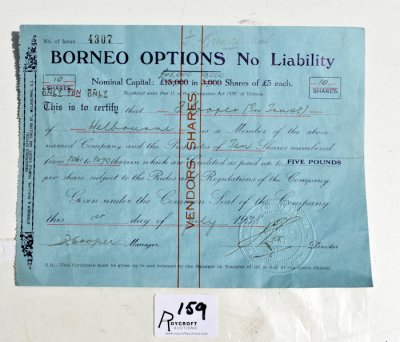 No. of Issue 4307
BORNEO OPTIONS No Liability
Nominal Capital: £15,000 in 3,000 Shares of £5 each.
10
SHARES
ONLY TEN ONLY
10
SHARES
This is to certify that Cooper (In Trust)
of Melbourne is a Member of the above
named Company and the Proprietor of Ten Shares numbered
from to therein which are credited as paid up to FIVE POUNDS
per share subject to the Rules and Regulations of the Company
Given under the Common Seal of the Company
this 1st day of July 1928
Cooper Manager. Director
VENDORS SHARES
N.B.—This Certificate must be given up to and retained by the Manager on Transfer of all or any of the above Shares
159
ROYCROFT
AUCTIONS